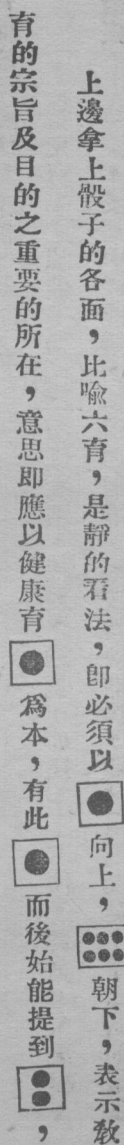 上邊拿上骰子的各面，比喻六育，是靜的看法，卽必須以⚀向上，⚅朝下，表示敎
育的宗旨及目的之重要的所在，意思卽應以健康育⚀爲本，有此⚀而後始能提到⚁，